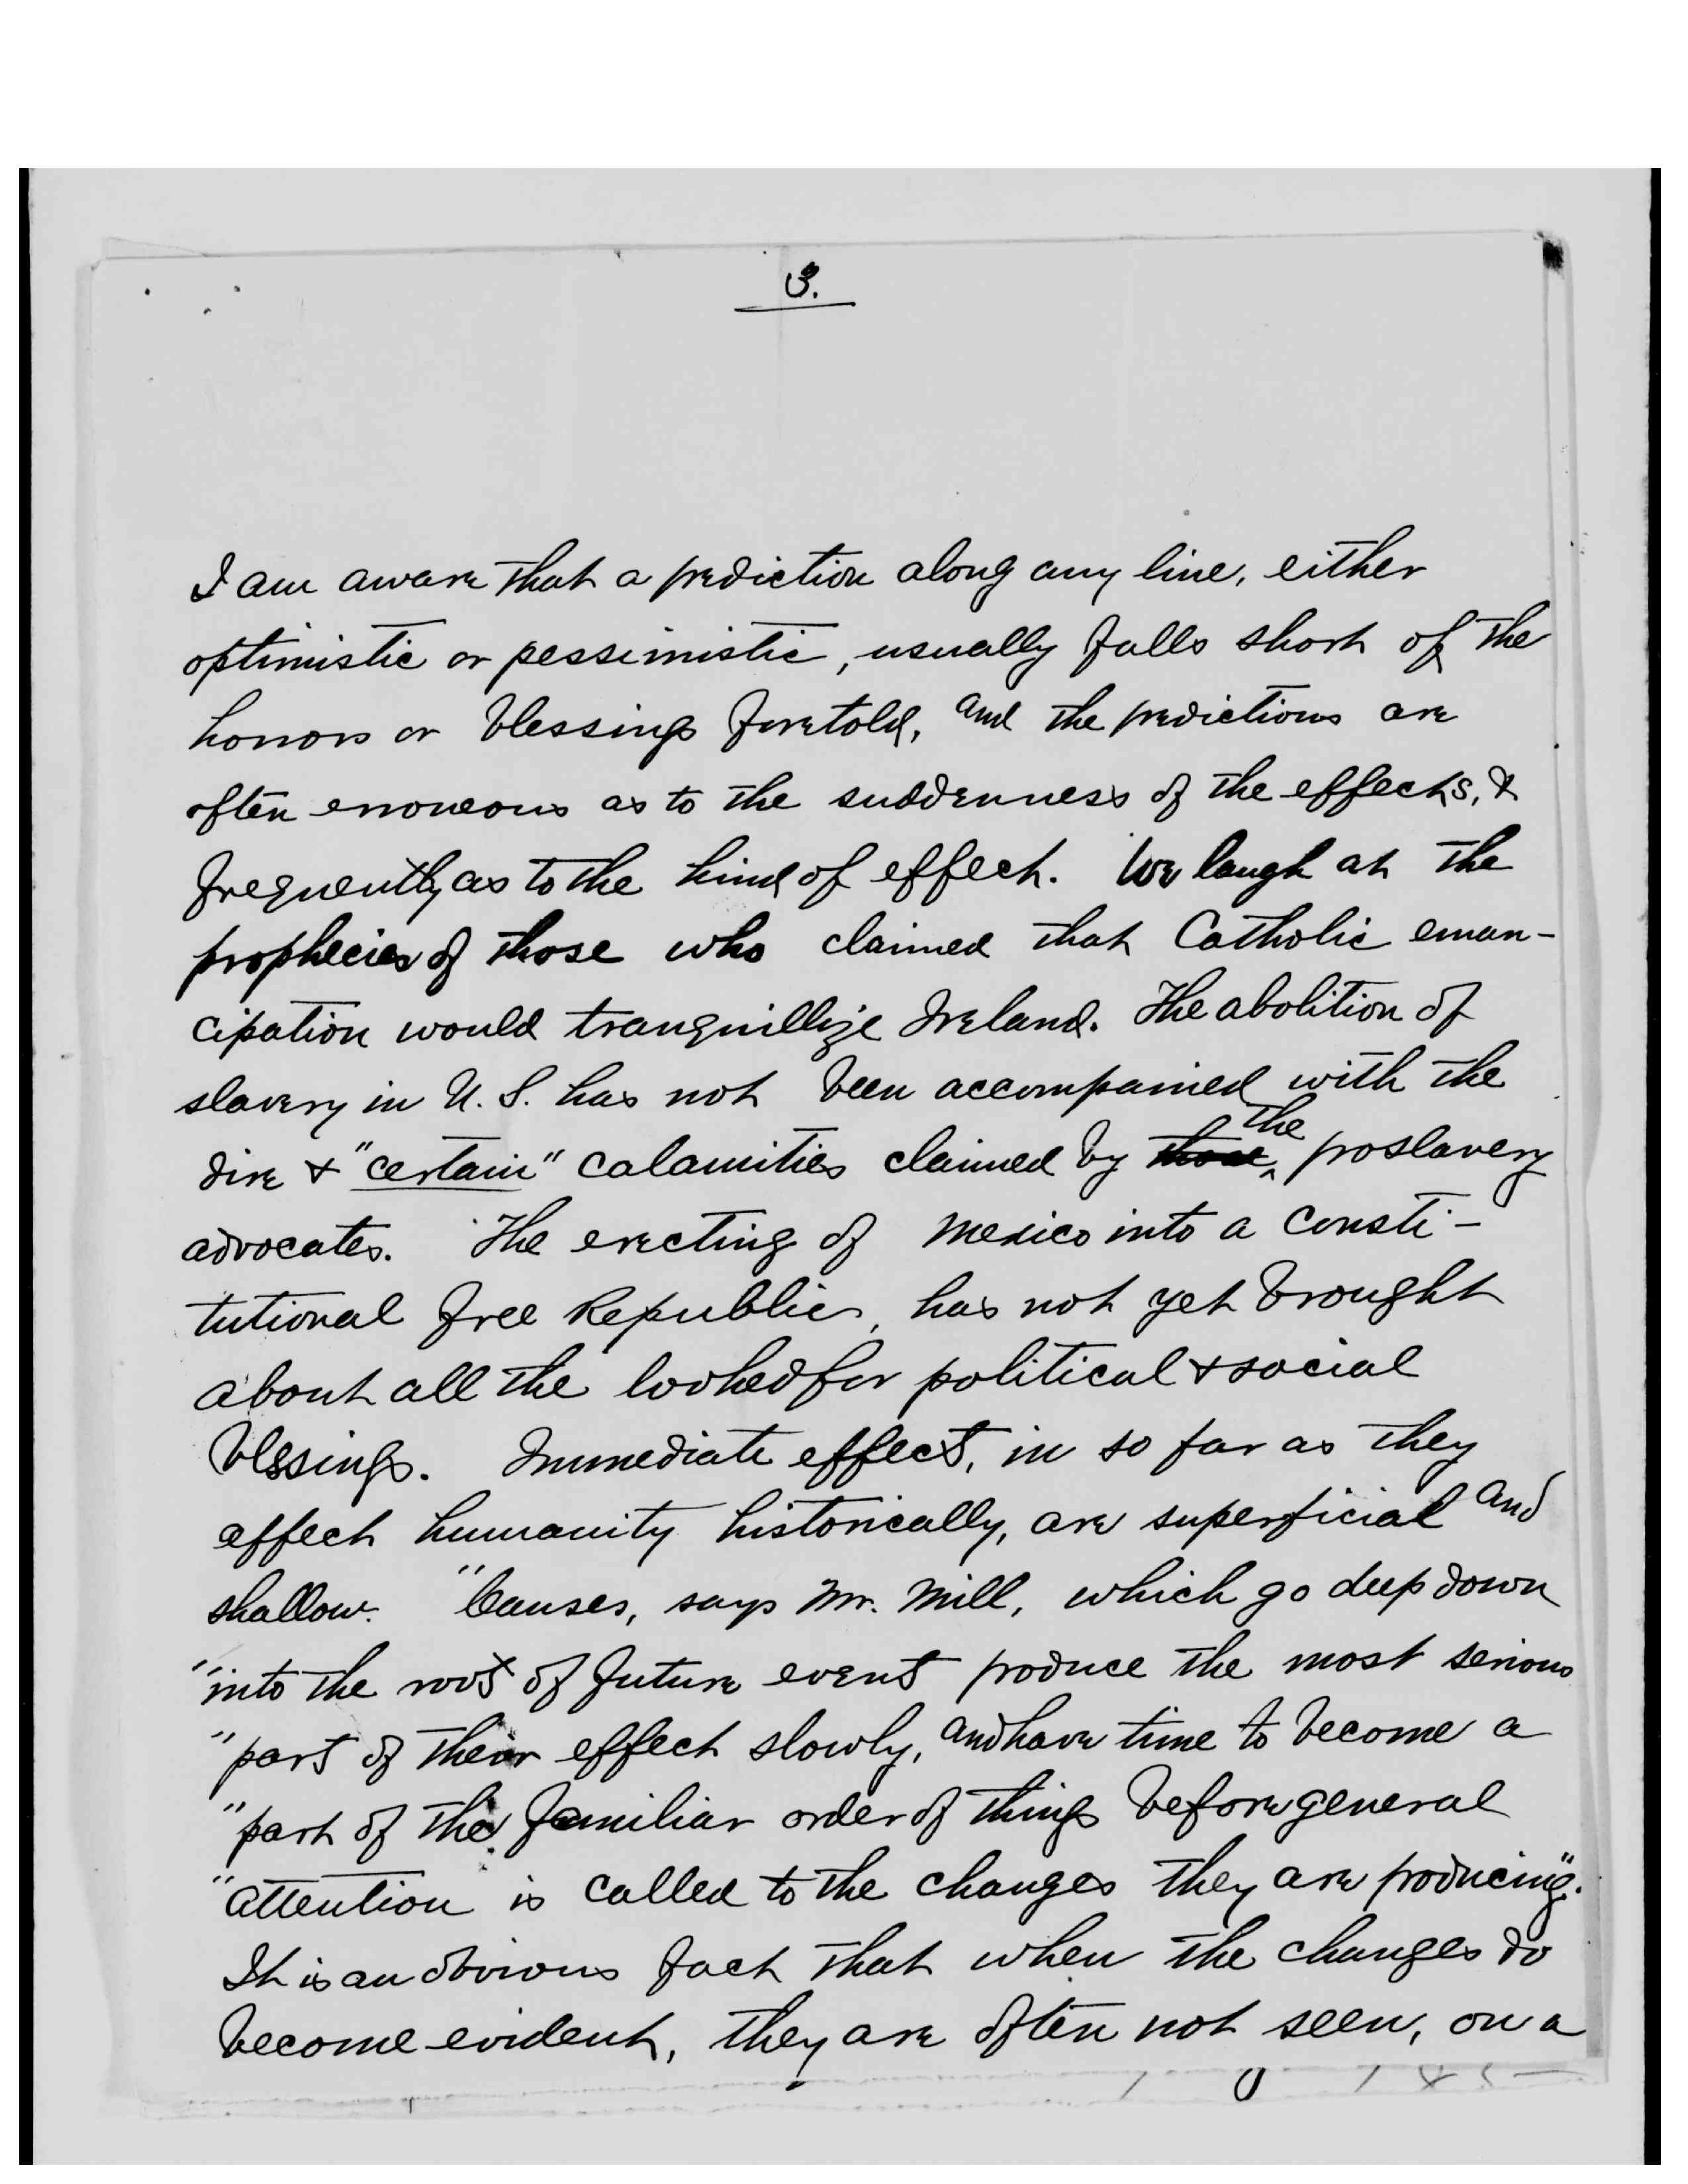 3.
I am aware that a prediction along any line, either
optimistic or pessimistic, usually falls short of the
horrors or blessings foretold, and the predictions are
often erroneous as to the suddenness of the effects, &
frequently as to the kind of effect. We laugh at the
prophecies of those who claimed that Catholic eman-
cipation would tranquillize Ireland. The abolition of
slavery in U. S. has not been accompained with the
dire & "certain" calamities claimed by those the proslavery
advocates. The erecting of Mexico into a Consti-
tutional free Republic, has not yet brought
about all the looked for political & social
blssings. Immediate effects, in so far as they
effect humanity historically, are superficial and
shallow. "Causes, says Mr. Mill, which go deep down
"into the roots of future events produce the most serious
"parts of their effect slowly, and have time to become a
"part of the familiar order of things before general
"attention is called to the changes they are producing".
It is an obvious fact that when the changes do
become evident, they are often not seen, on a